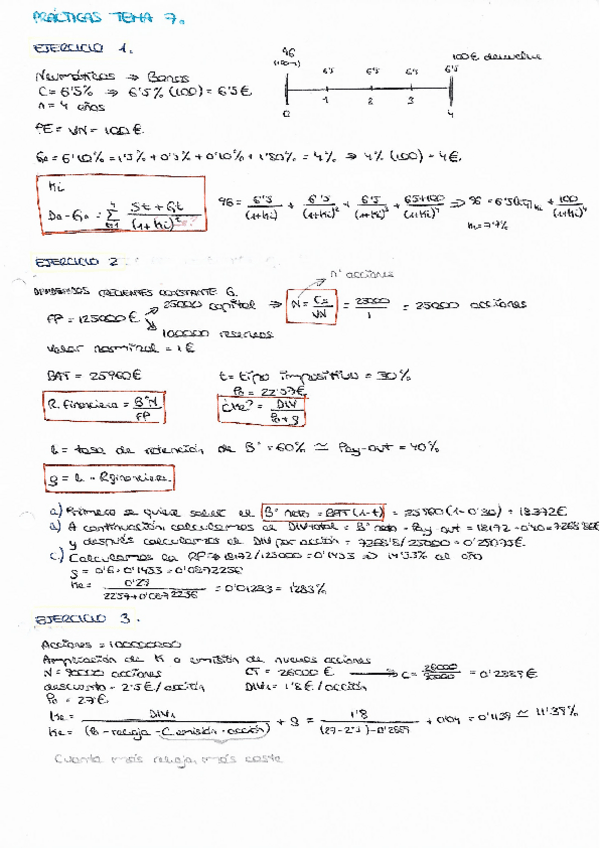 PRÁCTICAS TEMA 7.
EJERCICIO 1.
96 (100-4)
100€ devuelve
6'5 6'5 6'5 6'5
0 1 2 3 4
Neumáticos ⇒ Bonos
C = 6'5% ⇒ 6'5% (100) = 6'5€
n = 4 años
PE = VN = 100€.
= 4% ⇒ 4% (100) = 4€.
Ki
Do - Go = Σ St + Gt / (1+Ki)^t
96 = 6'5/(1+Ki) + 6'5/(1+Ki)² + 6'5/(1+Ki)³ + 6'5+100/(1+Ki)⁴ ⇒ 96 = 6'5 + 100/(1+Ki)⁴
Ki = 7'7%
EJERCICIO 2
nº acciones
DIVIDENDOS CRECIENTES CONSTANTE G.
FP = 125000€ 25000 capital ⇒ N = Cs/VN = 25000/1 = 25000 acciones
100000 reservas
Valor nominal = 1€
BAT = 25960€ t = tipo impositivo = 30%
Po = 22'57€
R. financiera = BºN/FP ¿Ke? = DIV/Po + g
b = tasa de retención de Bº = 60% ≃ Pay-out = 40%
g = b · Rfinanciera.
a) Primero se quiere saber el Bº neto = BAT (1-t) = 25960 (1-0'30) = 18172€
b) A continuación calculamos el DIV total = Bº neto · Pay out = 18172 · 0'40 = 7268'8€
y después calculamos el DIV por acción = 7268'8/25000 = 0'29075€.
c) Calculamos la RF ⇒ 18172/125000 = 0'1453 ⇒ 14'53% al año
g = 0'6 · 0'1453 = 0'08722€
Ke = 0'29 / = 0'01283 = 1'283%
EJERCICIO 3.
Acciones = 100000000
Ampliación de K o emisión de nuevas acciones
N = 90000 acciones CT = 26000€ → C = 26000/90000 = 0'2889€
descuento = 2'5€/acción DIV₁ = 1'8€/acción
Po = 27€.
Ke = DIV₁ / (Po - rebaja - C emisión · acción) + g = 1'8 / (27-2'5)-0'2889 + 0'04 = 0'1139 ≃ 11'39%
Ke =
Cuanta más rebaja, más coste